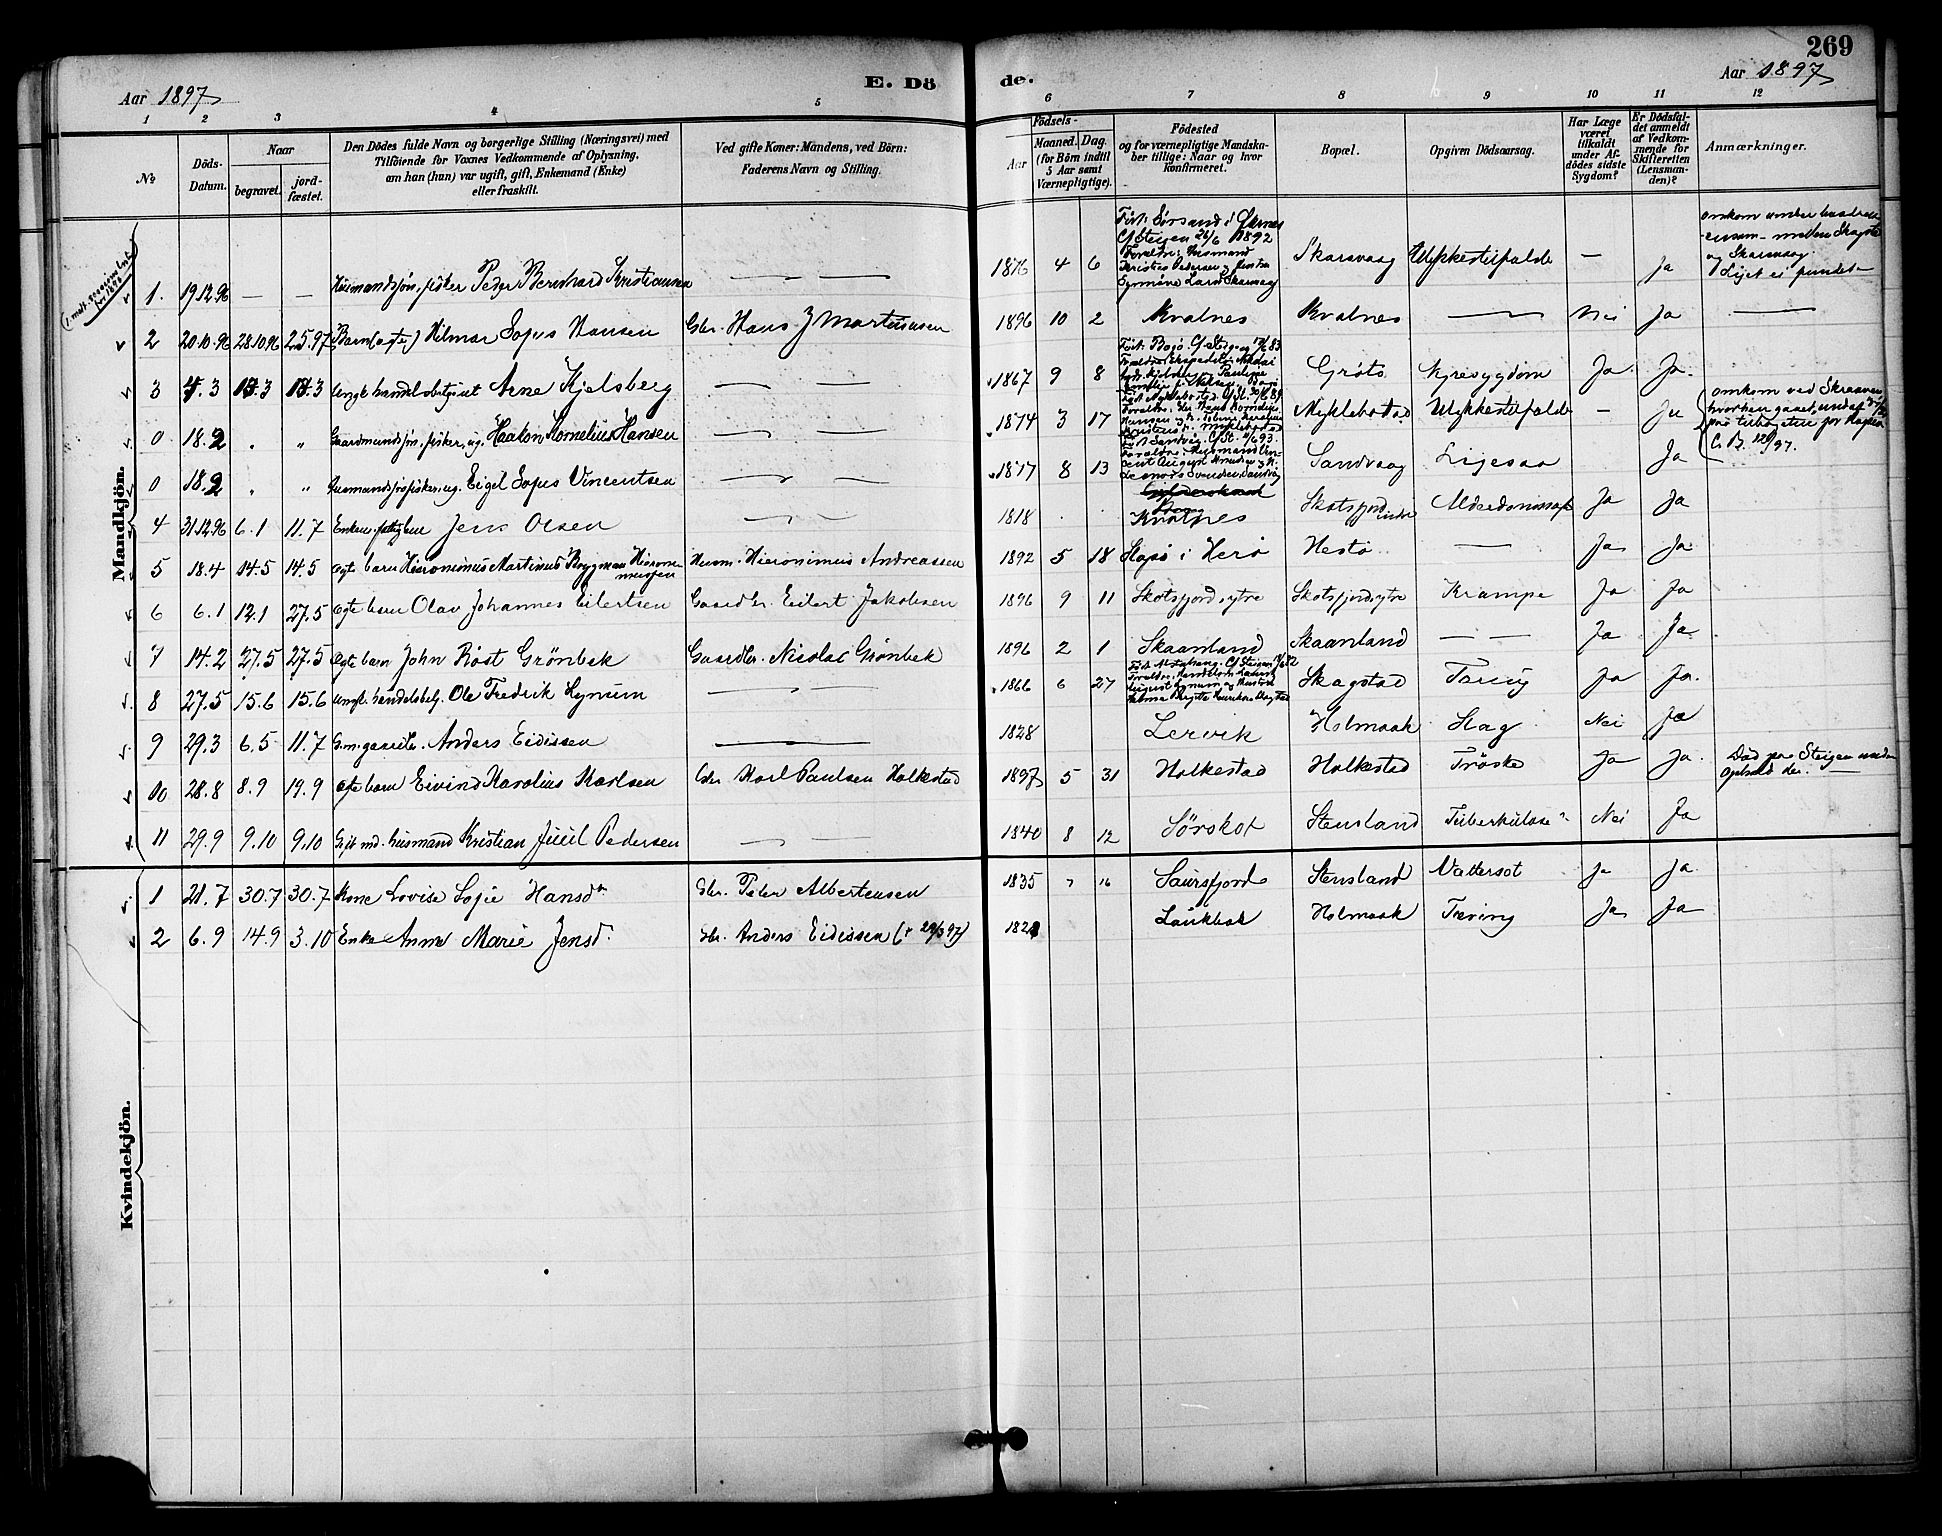 269
Aar 1897 E. Dö de. Aar 1897
1 2 3 4 5 6 7 8 9 10 11 12
No
Döds-Datum.
Naar
begravet. jordfæstet.
Den Dödes fulde Navn og borgerlige Stilling (Næringsvei) med
Tilföiende for Voxnes Vedkommende af Oplysning,
om han (hun) var ugift, gift, Enkemand (Enke)
eller fraskilt.
Ved gifte Koner: Mandens, ved Börn:
Faderens Navn og Stilling.
Födsels-
Aar Maaned. Dag.
(for Börn indtil
5 Aar samt
Værnepligtige).
Födested
og for værnepligtige Mandska-
ber tillige: Naar og hvor
konfirmeret.
Bopæl.
Opgiven Dödsaarsag.
Har Læge
været
tilkaldt
under Af-
dödes sidste
Sygdom?
Er Dödsfal-
det anmeldt
af Vedkom-
mende for
Skifteretten
(Lensman-
den)?
Anmærkninger.
Mandkjön.
1. 19.12.96 — — Husmandssön, fisker Peder Bernhard Kristiansen — — 1876 4 6 Födt: Sörsand i C/Steigen 26/6 1892 Forældre: Husmand Kristian Pedersen Skarsvaag Ulykkestilfælde — Ja omkom under baadreise mellem Skagstad og Skarsvaag. Liget ei fundet
2 20.10.96 28.10.96 2.5.97 Barn (ægte) Hilmar Sofus Hansen Gbr. Hans J Martinusen 1896 10 2 Kvalnes Kvalnes — Nei Ja —
3 4.3 13.3 13.3 Ungk. handelsbetjent Arne Kjelsberg — — 1867 9 8 Födt: Bogö. C/Steigen 17/6 83 Gröto Hjertesygdom Ja Ja
0 18.2 „ „ Gaardmandssön, fisker, ug. Haakon Kornelius Hansen — — 1874 3 17 Myklebostad Ulykkestilfælde — Ja omkom ved Skraaven
0 18.2 „ „ Husmandssön fisker, ug. Eigel Sofus Vincentsen — — 1877 8 13 Födt Sandvåg. C/St. 4/6 93. Sandvaag Ligesaa Ja
4 31.12.96 6.1 11.7 Enkem. Jens Olsen — 1818 . . Kvalnes Skotsfjord indre Alderdomssvaghed Ja Ja
5 18.4 14.5 14.5 Ægte barn Hieronimus Martinus Bryggman Hieronimusen Husm. Hieronimus Andreassen 1892 5 18 i Herö Hestö — Ja Ja
6 6.1 12.1 27.5 Ægte barn Olav Johannes Eilertsen Gaardbr. Eilert Jakobsen 1896 9 11 Skotsfjord, ytre Skotsfjord, ytre Krampe Ja Ja
7 14.2 27.5 27.5 Ægte barn John Röst Grönbek Gaardbr. Nicolai Grönbek 1896 2 1 Skaanland Skaanland — — Ja Ja
8 27.5 15.6 15.6 Ungk. handelsbetj. Ole Fredrik Lynum — — 1866 6 27 Skagstad Tæring Ja Ja.
9 29.3 6.5 11.7 G.m. gaardbr. Anders Eidissen — 1828 Lervik Holmaak Slag Nei Ja
10 28.8 8.9 19.9 Ægte barn Eivind Karolius Karlsen Gbr. Karl Paulsen Holkestad 1897 5 31 Holkestad Holkestad Tröske Ja Ja. Död paa Steigen under ophold der. —
11 29.9 9.10 9.10 Gift md. husmand Kristian Juul Pedersen — — 1840 8 12 Sörskot Stensland Tuberkulose? Nei Ja
Kvindekjön.
1 21.7 30.7 30.7 Kone Lovise Sofie Hansdr. Gbr. Peter Albertensen 1835 7 16 Saursfjord Stensland Vattersot Ja Ja.
2 6.9 14.9 3.10 Enke Anne Marie Jensd. Gbr. Anders Eidissen († 29/3 97) 182 Laukbak Holmaak Tæring Ja Ja